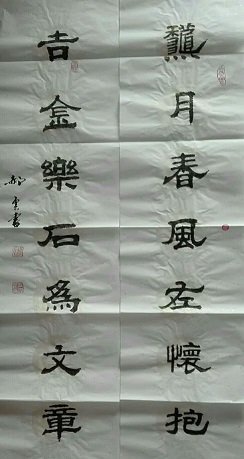 龝月春風在懷抱
吉金樂石爲文章